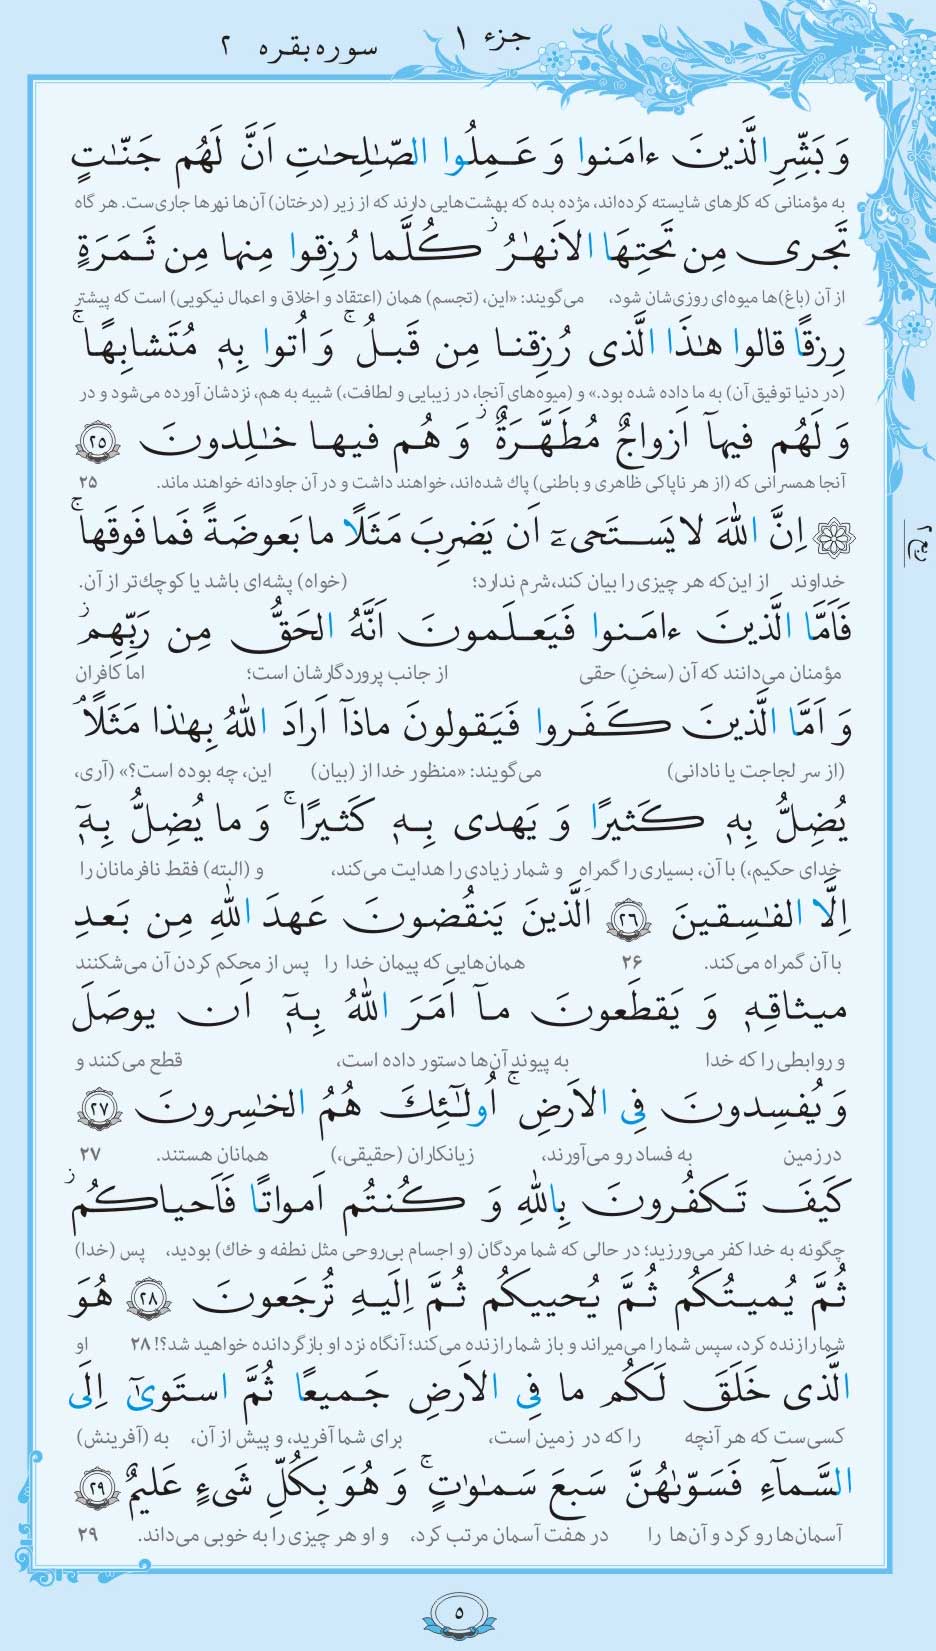 جزء ۱
سوره بقره ۲
وَ بَشِّرِ الَّذينَ ءامَنوا وَ عَمِلُوا الصّٰلِحٰتِ اَنَّ لَهُم جَنّٰتٍ
به مؤمنانی که کارهای شایسته کرده‌اند، مژده بده که بهشت‌هایی دارند که از زیر (درختان) آن‌ها نهرها جاری‌ست. هر گاه
تَجری مِن تَحتِهَا الاَنهٰرُ ۖ كُلَّما رُزِقوا مِنها مِن ثَمَرَةٍ
از آن (باغ)ها میوه‌ای روزی‌شان شود، می‌گویند: «این، (تجسم) همان (اعتقاد و اخلاق و اعمال نیکویی) است که پیشتر
رِزقًا قالوا هٰذَا الَّذی رُزِقنا مِن قَبلُ ۚ وَ اُتوا بِهٖ مُتَشابِهًا ۚ
(در دنیا توفیق آن) به ما داده شده بود.» و (میوه‌های آنجا، در زیبایی و لطافت،) شبیه به هم، نزدشان آورده می‌شود و در
وَ لَهُم فيهآ اَزواجٌ مُطَهَّرَةٌ ۖ وَ هُم فيها خٰلِدونَ ۲۵
آنجا همسرانی که (از هر ناپاکی ظاهری و باطنی) پاك شده‌اند، خواهند داشت و در آن جاودانه خواهند ماند. ۲۵
اِنَّ اللّٰهَ لا يَستَحیٓ اَن يَضرِبَ مَثَلًا ما بَعوضَةً فَما فَوقَها ۚ
خداوند از این‌که هر چیزی را بیان کند،شرم ندارد؛ (خواه) پشه‌ای باشد یا کوچك‌تر از آن.
فَاَمَّا الَّذينَ ءامَنوا فَيَعلَمونَ اَنَّهُ الحَقُّ مِن رَبِّهِم ۖ
مؤمنان می‌دانند که آن (سخنِ) حقی از جانب پروردگارشان است؛ اما کافران
وَ اَمَّا الَّذينَ كَفَروا فَيَقولونَ ماذآ اَرادَ اللّٰهُ بِهٰذا مَثَلًا ۘ
(از سر لجاجت یا نادانی) می‌گویند: «منظور خدا از (بیان) این، چه بوده است؟» (آری،
يُضِلُّ بِهٖ كَثيرًا وَ يَهدی بِهٖ كَثيرًا ۚ وَ ما يُضِلُّ بِهٖٓ
خدای حکیم،) با آن، بسیاری را گمراه و شمار زیادی را هدایت می‌کند، و (البته) فقط نافرمانان را
اِلَّا الفٰسِقينَ ۲۶ اَلَّذينَ يَنقُضونَ عَهدَ اللّٰهِ مِن بَعدِ
با آن گمراه می‌کند. ۲۶ همان‌هایی که پیمان خدا را پس از محکم کردن آن می‌شکنند
ميثاقِهٖ وَ يَقطَعونَ مآ اَمَرَ اللّٰهُ بِهٖٓ اَن يوصَلَ
و روابطی را که خدا به پیوند آن‌ها دستور داده است، قطع می‌کنند و
وَ يُفسِدونَ فِی الاَرضِ ۚ اُولٰٓئِكَ هُمُ الخٰسِرونَ ۲۷
در زمین به فساد رو می‌آورند، زیانکاران (حقیقی،) همانان هستند. ۲۷
كَيفَ تَكفُرونَ بِاللّٰهِ وَ كُنتُم اَمواتًا فَاَحياكُم ۖ
چگونه به خدا کفر می‌ورزید؛ در حالی که شما مردگان (و اجسام بی‌روحی مثل نطفه و خاك) بودید، پس (خدا)
ثُمَّ يُميتُكُم ثُمَّ يُحييكُم ثُمَّ اِلَيهِ تُرجَعونَ ۲۸ هُوَ
شما را زنده کرد، سپس شما را می‌میراند و باز شما را زنده می‌کند؛ آنگاه نزد او بازگردانده خواهید شد؟! ۲۸ او
الَّذی خَلَقَ لَكُم ما فِی الاَرضِ جَميعًا ثُمَّ استَویٰٓ اِلَی
کسی‌ست که هر آنچه را که در زمین است، برای شما آفرید، و پیش از آن، به (آفرینش)
السَّمآءِ فَسَوّٰىهُنَّ سَبعَ سَمٰوٰتٍ ۚ وَ هُوَ بِكُلِّ شَیءٍ عَليمٌ ۲۹
آسمان‌ها رو کرد و آن‌ها را در هفت آسمان مرتب کرد، و او هر چیزی را به خوبی می‌داند. ۲۹
۵